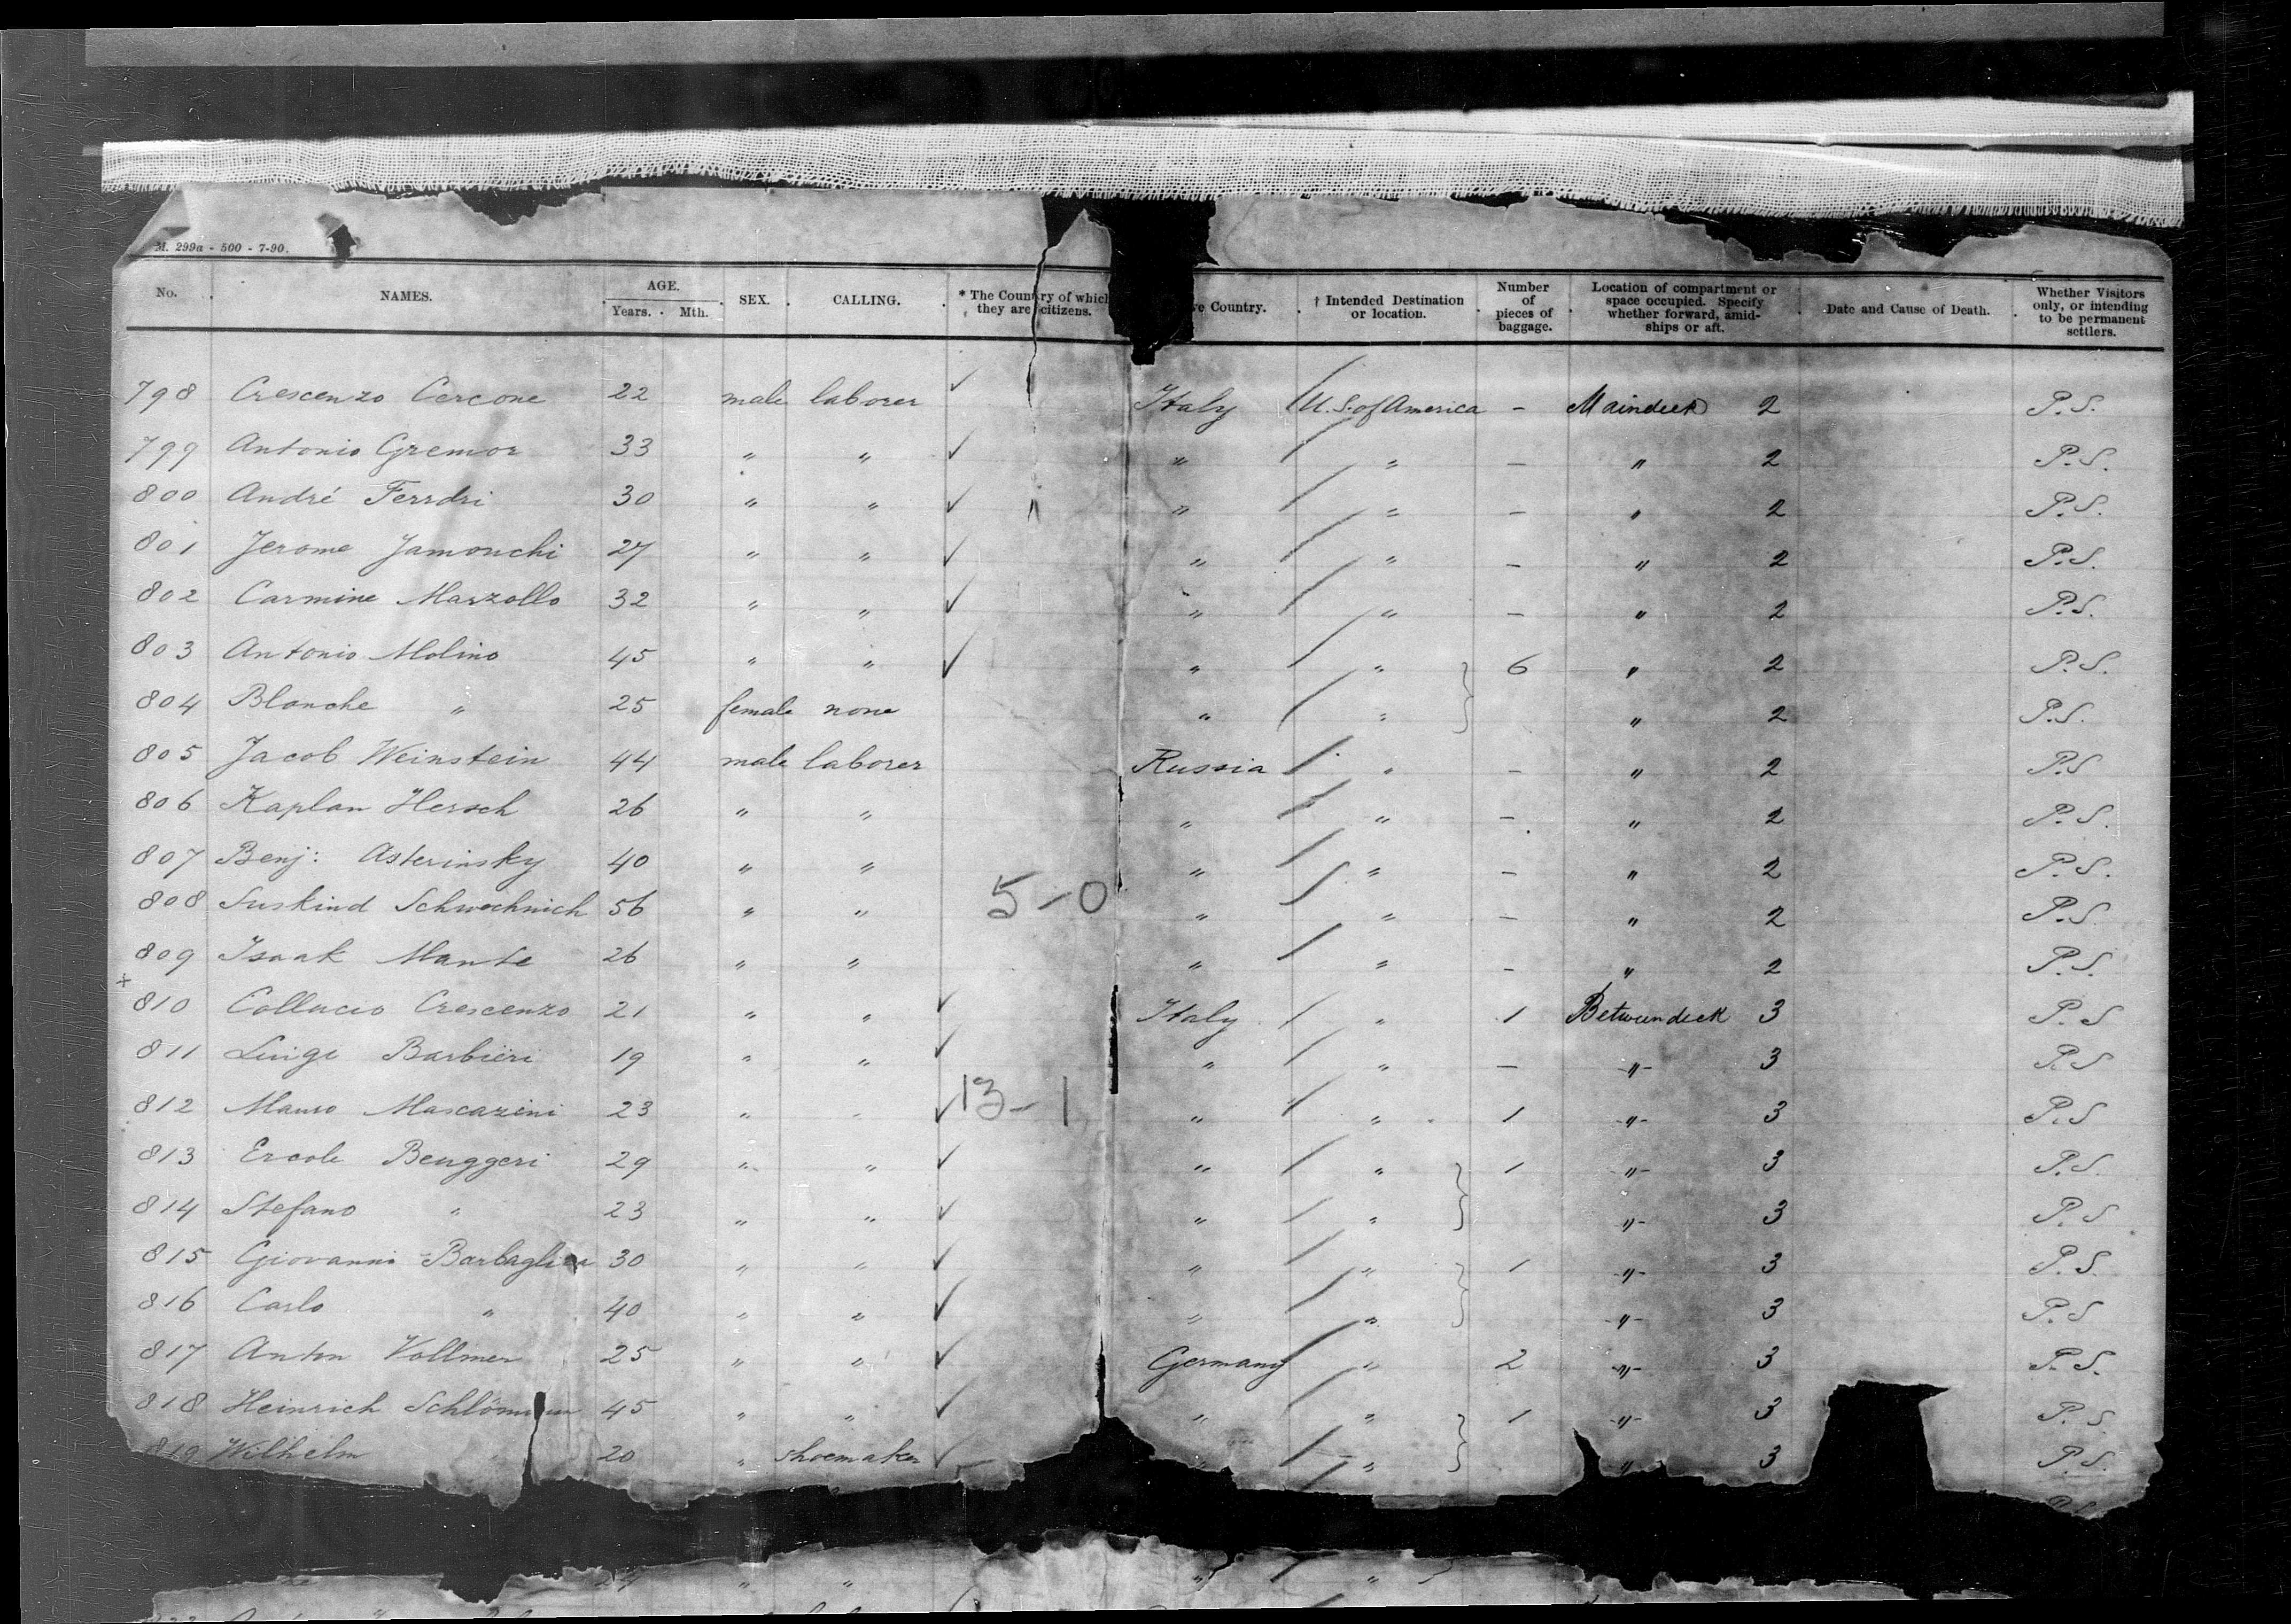 M. 299a - 500 - 7-90.
No. NAMES. AGE. Years. Mth. SEX. CALLING. * The Country of which they are citizens. ve Country. † Intended Destination or location. Number of pieces of baggage. Location of compartment or space occupied. Specify whether forward, amidships or aft. Date and Cause of Death. Whether Visitors only, or intending to be permanent settlers.
798 Crescenzo Cercone 22 male laborer ✓ Italy U.S. of America - Maindeck 2 P.S.
799 Antonio Gremor 33 " " ✓ " " - " 2 P.S.
800 André Ferrdri 30 " " ✓ " " - " 2 P.S.
801 Jerome Jamonchi 27 " " ✓ " " - " 2 P.S.
802 Carmine Marzollo 32 " " ✓ " " - " 2 P.S.
803 Antonio Molino 45 " " ✓ " " } 6 " 2 P.S.
804 Blanche " 25 female none " " " 2 P.S.
805 Jacob Weinstein 44 male laborer Russia " - " 2 P.S
806 Kaplan Hersch 26 " " " " - " 2 P.S.
807 Benj: Asterinsky 40 " " " " - " 2 P.S.
5-0
808 Suskind Schwochnich 56 " " " " - " 2 P.S.
809 Isaak Mante 26 " " " " - " 2 P.S.
x
810 Collucio Crescenzo 21 " " ✓ Italy " 1 Betweendeck 3 P.S
811 Luigi Barbiëri 19 " " ✓ " " - " 3 P.S
13-1
812 Mauro Mascazini 23 " " ✓ " " 1 " 3 P.S
813 Ercole Benggeri 29 " " ✓ " " } 1 " 3 P.S.
814 Stefano " 23 " " ✓ " " " 3 P.S
815 Giovanni 30 " " ✓ " " } 1 " 3 P.S.
816 Carlo " 40 " " ✓ " " " 3 P.S
817 Anton Vollmer 25 " " ✓ Germany " 2 " 3 P.S.
818 Heinrich 45 " " ✓ " " } 1 " 3 P.S
819 Wilhelm " 20 " shoemaker ✓ " " " 3 P.S.
P.S.